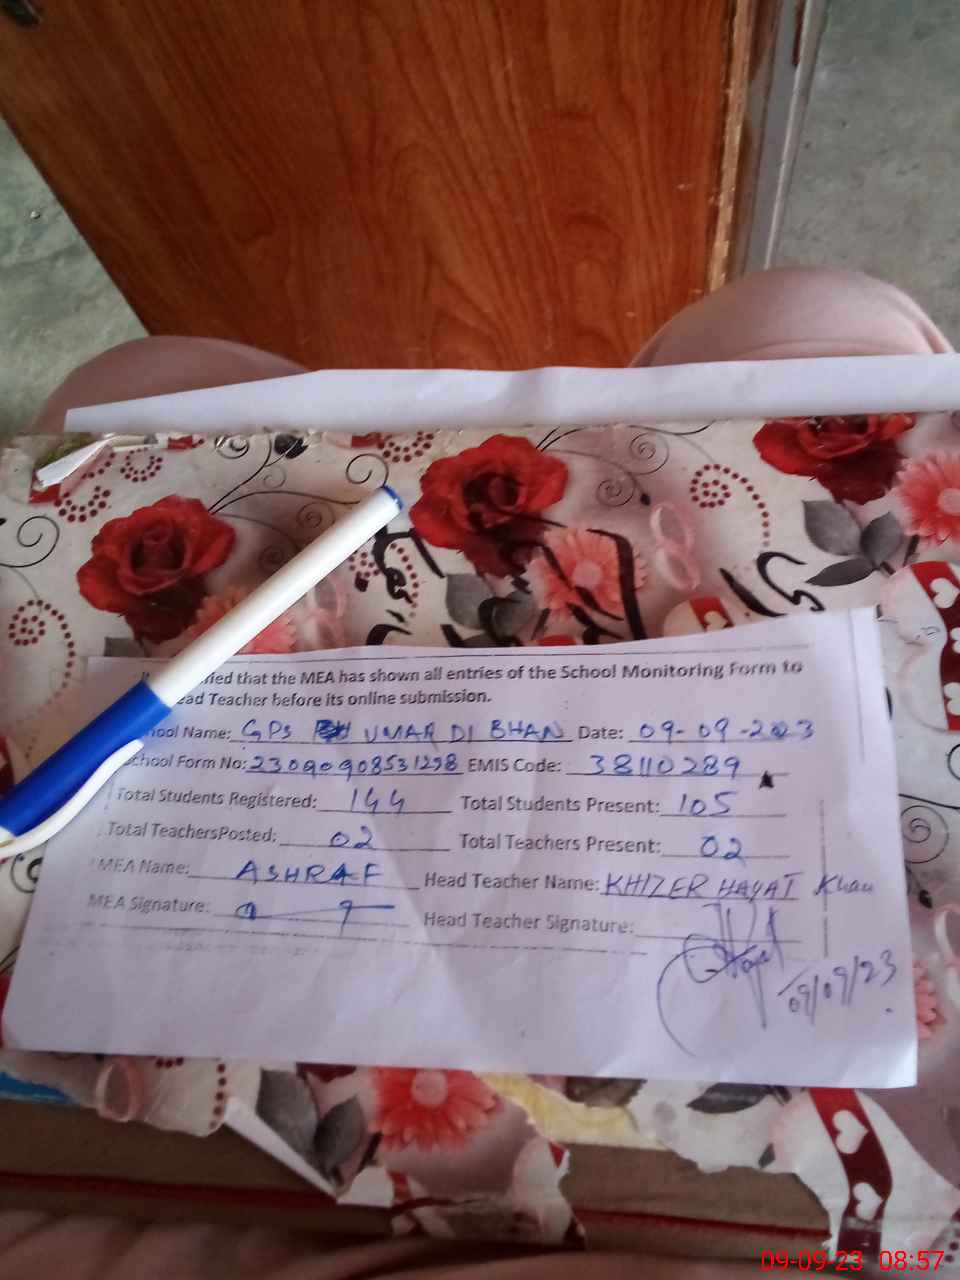 ied that the MEA has shown all entries of the School Monitoring Form to
ead Teacher before its online submission.
hool Name: GPS UMAR DI BHAN Date: 09-09-2023
School Form No: 23090908531298 EMIS Code: 38110289
Total Students Registered: 144 Total Students Present: 105
Total TeachersPosted: 02 Total Teachers Present: 02
MEA Name: ASHRAF Head Teacher Name: KHIZER HAYAT Khan
MEA Signature: Head Teacher Signature:
09/09/23
09-09-23 08:57